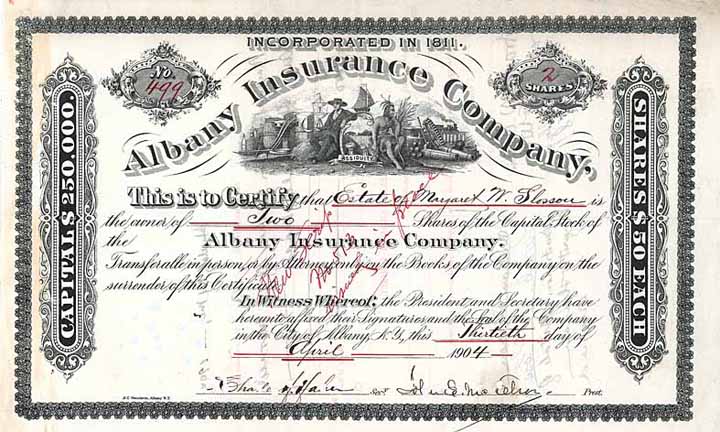 INCORPORATED IN 1811.
No.
499
2
SHARES
Albany Insurance Company,
ASSIDUITY
CAPITAL $ 250.000.
SHARES $ 50 EACH
This is to Certify that Estate of Margaret W. Slosson is
the owner of Two Shares of the Capital Stock of
the Albany Insurance Company.
Transferable in person, or by Attorney only on the Books of the Company on the
surrender of this Certificate
In Witness Whereof; the President and Secretary have
hereunto affixed their Signatures and the Seal of the Company
in the City of Albany, N.Y., this Thirtieth day of
April 1904
New Scrip
No 512
issued in place
Prest.